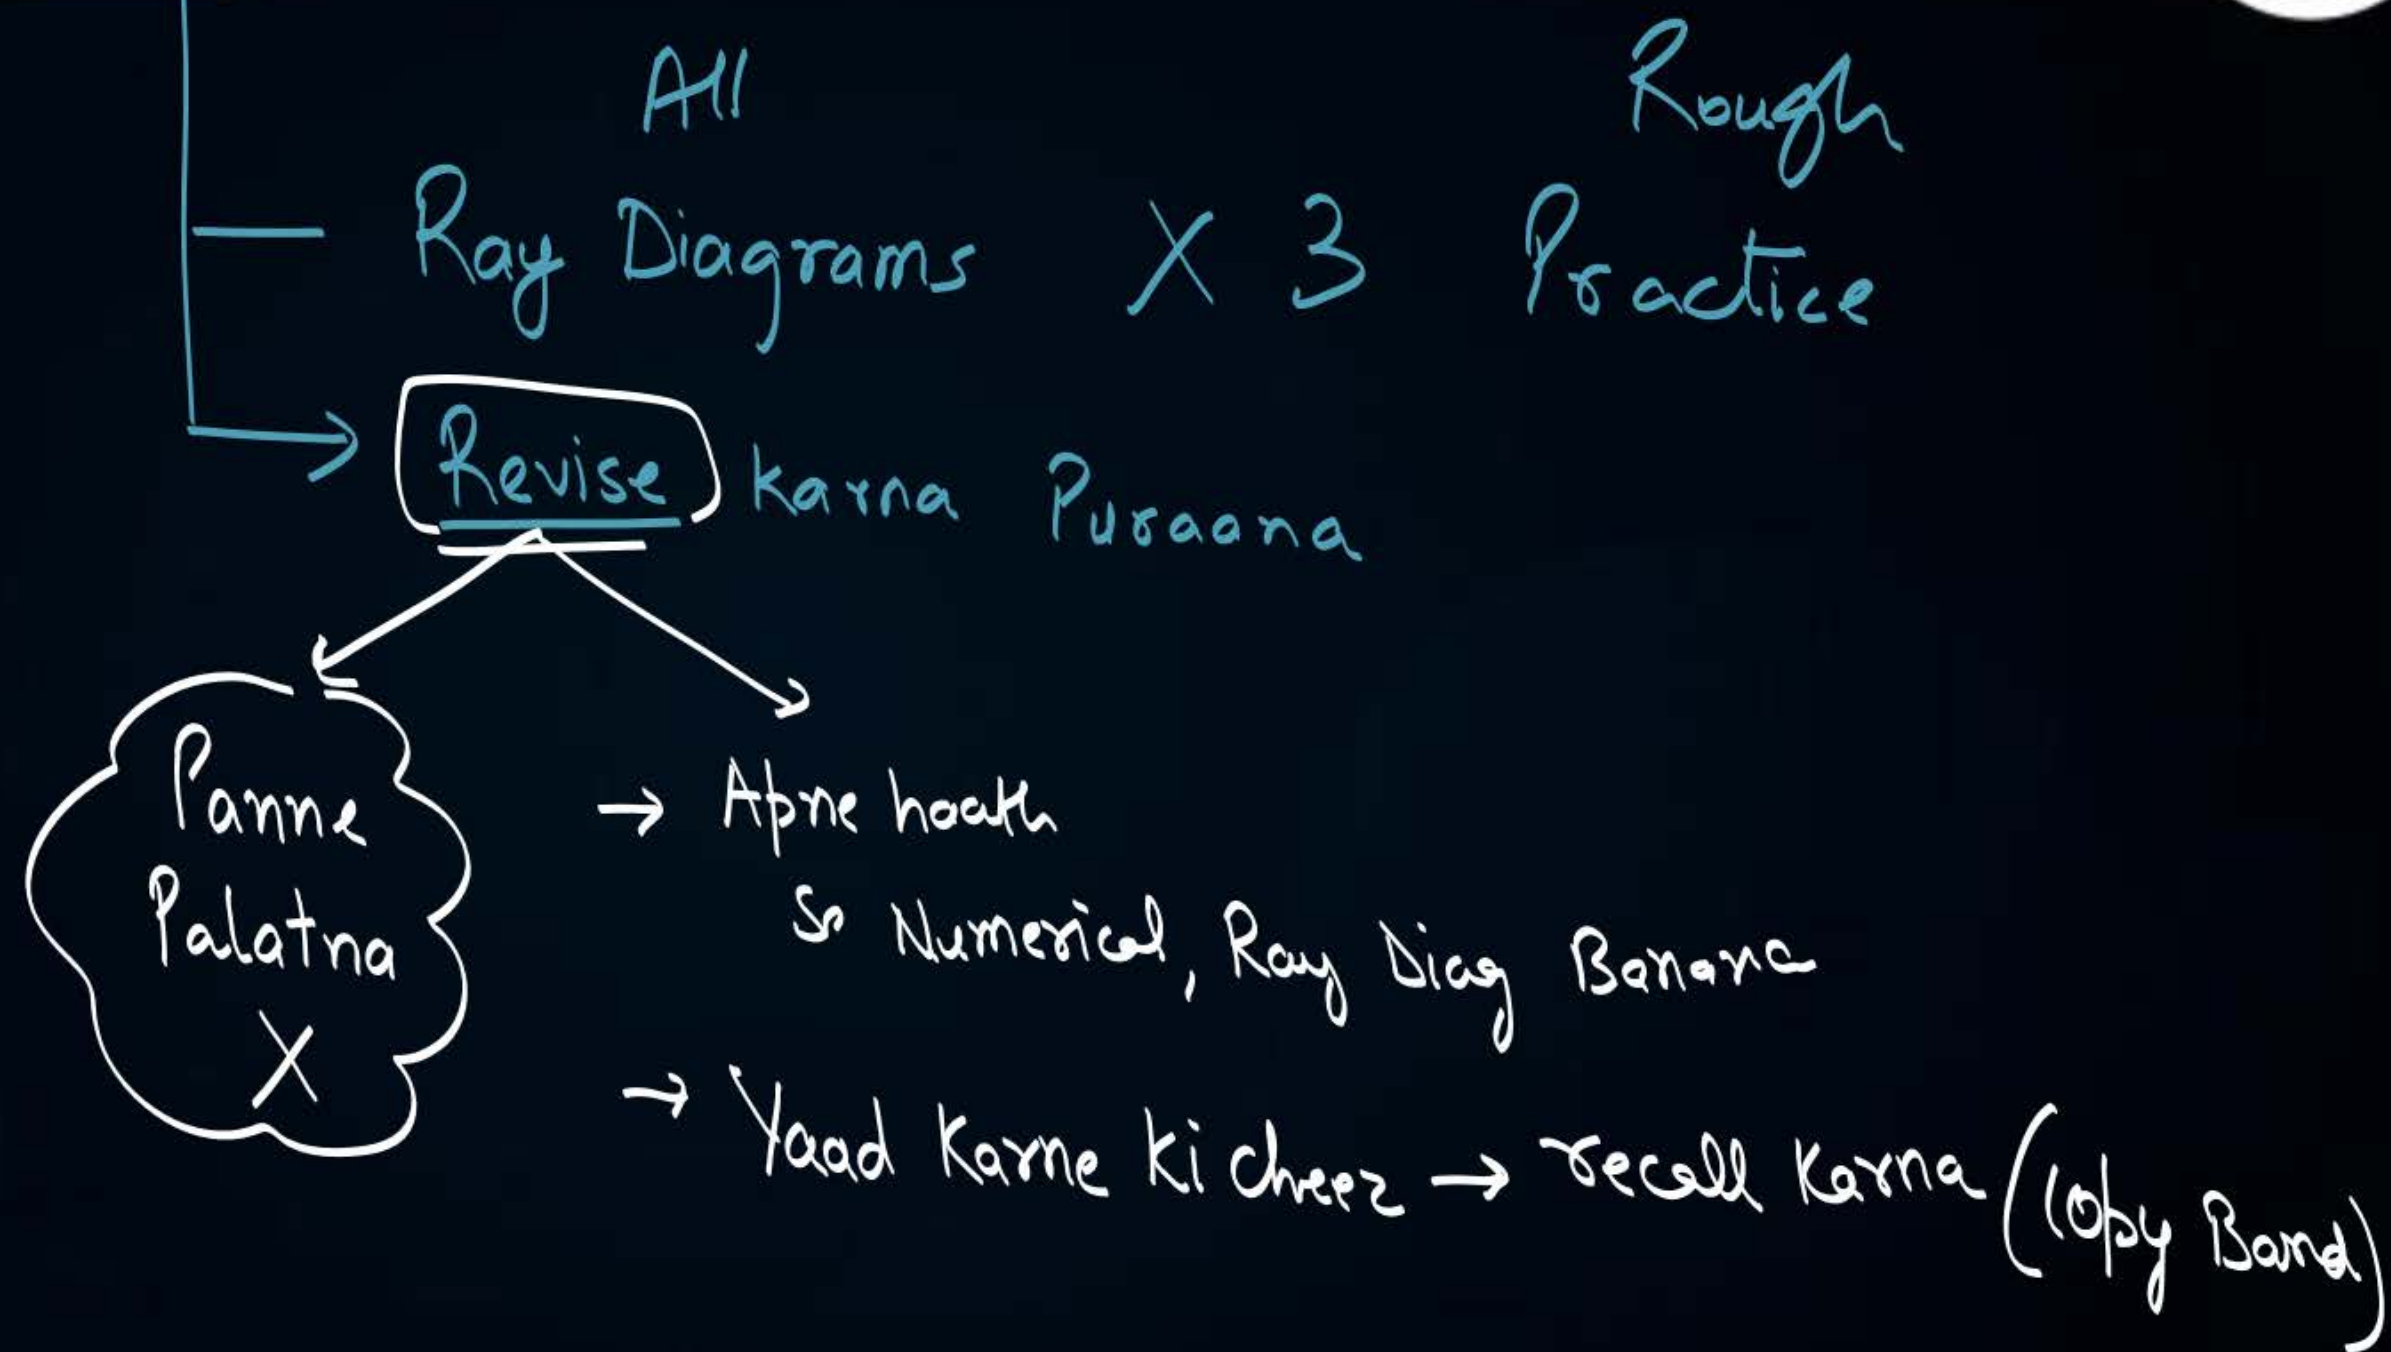 All
Rough
Ray Diagrams X 3 Practice
Revise karna Puraana
Panne
Palatna
X
→ Apne haath
se Numerical, Ray Diag Banana
→ Yaad Karne Ki cheez → recall Karna (Copy Band)